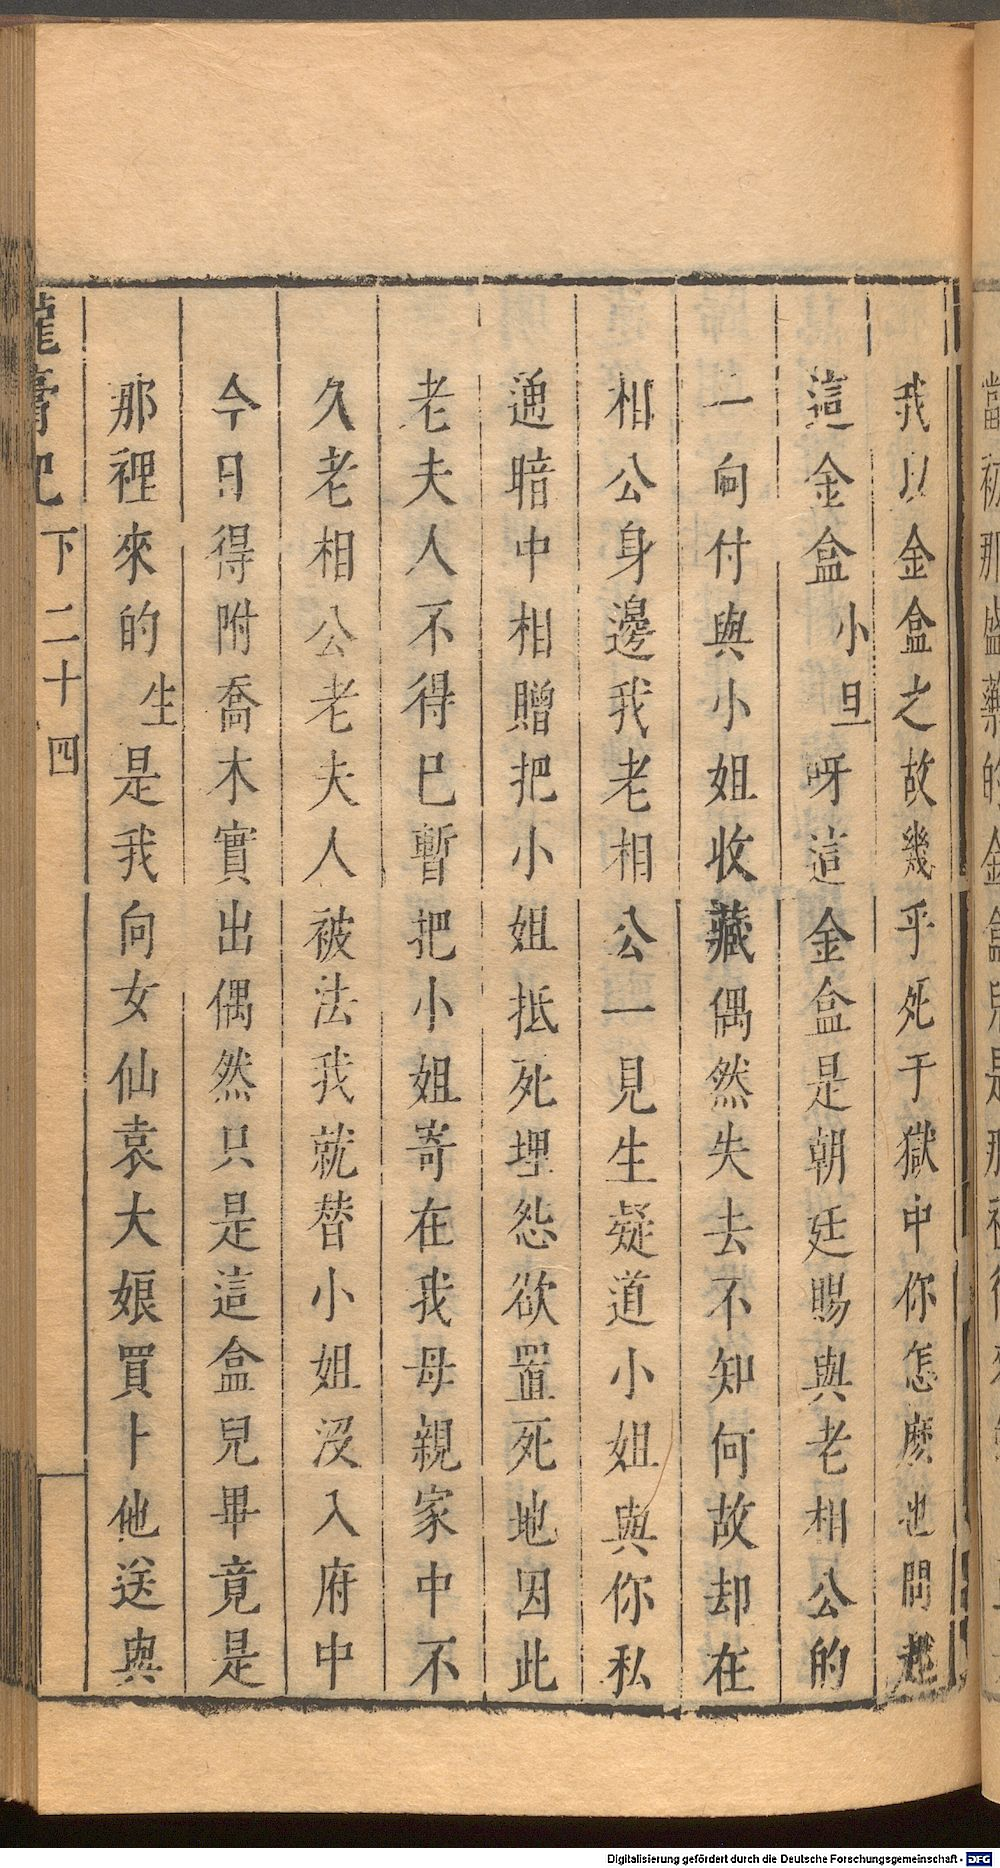 我以金盒之故幾乎死于獄中你怎麽也問起
這金盒小旦呀這金盒是朝廷賜與老相公的
一向付與小姐收藏偶然失去不知何故却在
相公身邊我老相公一見生疑道小姐與你私
通暗中相贈把小姐抵死埋怨欲置死地因此
老夫人不得已暫把小姐寄在我母親家中不
久老相公老夫人被法我就替小姐沒入府中
今日得附喬木實出偶然只是這盒兒畢竟是
那裡來的生是我向女仙袁大娘買卜他送與
龍膏記 下 二十四
Digitalisierung gefördert durch die Deutsche Forschungsgemeinschaft - DFG